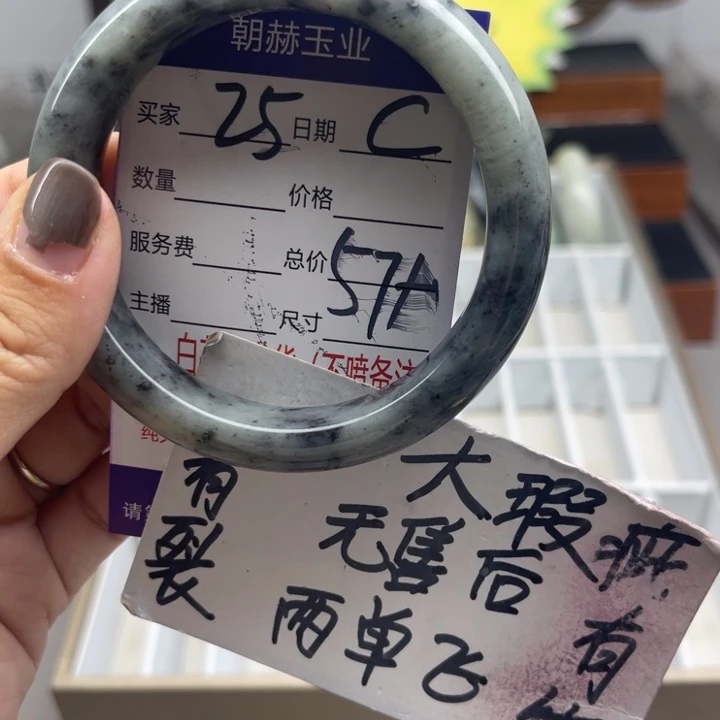 朝赫玉业
买家 25 日期 C
数量 价格
服务费 总价 57H
主播 尺寸
(不喷备注
请
有裂
大瑕疵
无售后 有
两单飞